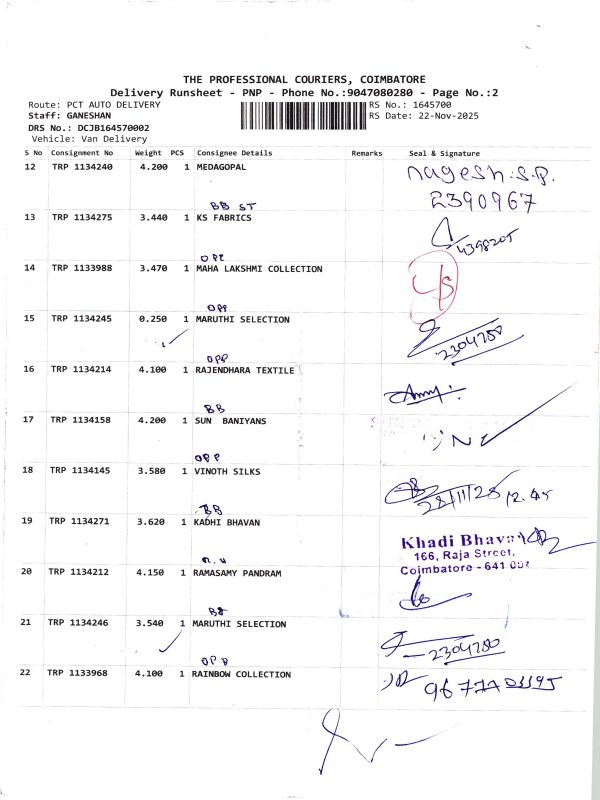 THE PROFESSIONAL COURIERS, COIMBATORE
Delivery Runsheet - PNP - Phone No.:9047080280 - Page No.:2
Route: PCT AUTO DELIVERY RS No.: 1645700
Staff: GANESHAN RS Date: 22-Nov-2025
DRS No.: DCJB164570002
Vehicle: Van Delivery
S No Consignment No Weight PCS Consignee Details Remarks Seal & Signature
12 TRP 1134240 4.200 1 MEDAGOPAL nagesh.s.p.
BB ST 2390967
13 TRP 1134275 3.440 1 KS FABRICS 4398205
OPP
14 TRP 1133988 3.470 1 MAHA LAKSHMI COLLECTION
OPP
15 TRP 1134245 0.250 1 MARUTHI SELECTION
OPP 2304780
16 TRP 1134214 4.100 1 RAJENDHARA TEXTILE
BB
17 TRP 1134158 4.200 1 SUN BANIYANS
OPP
18 TRP 1134145 3.580 1 VINOTH SILKS
BB 12.45
19 TRP 1134271 3.620 1 KADHI BHAVAN
Khadi Bhavan
166, Raja Street,
Coimbatore - 641 001
20 TRP 1134212 4.150 1 RAMASAMY PANDRAM
BB
21 TRP 1134246 3.540 1 MARUTHI SELECTION 2304780
OPP
22 TRP 1133968 4.100 1 RAINBOW COLLECTION